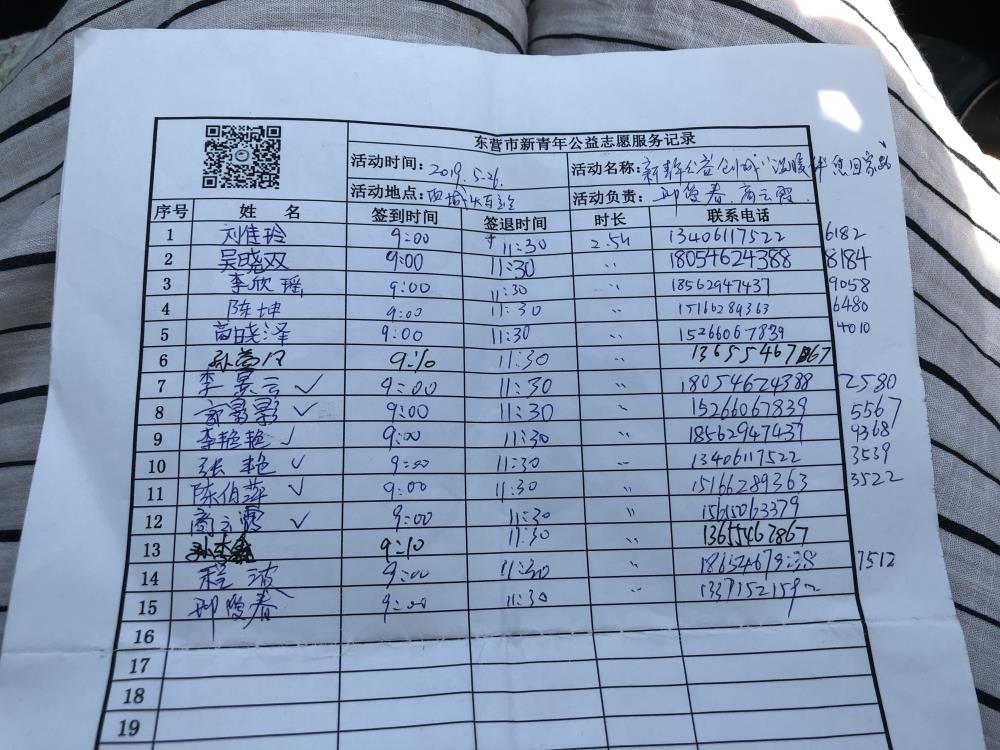 东营市新青年公益志愿服务记录
活动时间: 2019.5.26. 活动名称: 新青年公益创城"温暖伴您回家路
活动地点: 西城火车站 活动负责: 邱俊春.商云霞.
序号 姓名 签到时间 签退时间 时长 联系电话
1 刘佳玲 9:00 11:30 2.5h 13406117522 6182
2 吴晓双 9:00 11:30 〃 18054624388 8184
3 李欣瑶 9:00 11:30 〃 18562947437 9058
4 陈坤 9:00 11:30 〃 15166289363 6480
5 苗晓泽 9:00 11:30 〃 15266067839 4010
6 9:10 11:30 〃
7 李景云 ✓ 9:00 11:30 〃 18054624388 2580
8 影 ✓ 9:00 11:30 〃 15266067839 5567
9 李艳艳 ✓ 9:00 11:30 〃 18562947437 9368
10 张艳 ✓ 9:00 11:30 〃 13406117522 3539
11 陈伯萍 ✓ 9:00 11:30 〃 15166289363 3522
12 商云霞 ✓ 9:00 11:30 〃
13 9:10 11:30 〃
14 程波 9:00 11:30 〃 7512
15 邱俊春 9:00 11:30 〃
16
17
18
19